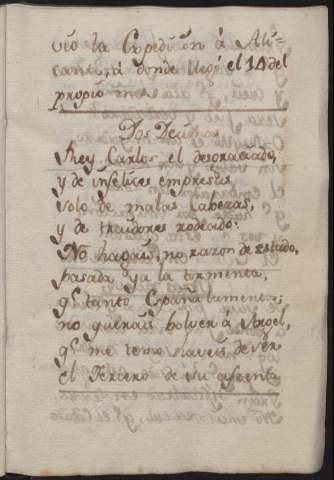 vio la Expedicion á Ali-
cante, á donde llegó el 14 del
propio mes.
Dos Decimas
Rey Carlos el desgraciado,
y de infelices empresas
solo de malas Cabezas,
y de traidores rodeado:
No hagais, no razon de estado,
pasada ya la tormenta,
qe tanto España lamenta;
no querais bolver á Argel,
qe me temo haveis de ver
el Tercero de su afrenta